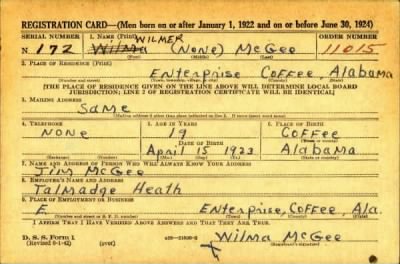 REGISTRATION CARD—(Men born on or after January 1, 1922 and on or before June 30, 1924)
SERIAL NUMBER 1. NAME (Print) ORDER NUMBER
WILMER
N 172 Wilma (None) McGee 11015
(First) (Middle) (Last)
2. PLACE OF RESIDENCE (Print)
Enterprise Coffee, Alabama
(Number and street) (Town, township, village, or city) (County) (State)
[THE PLACE OF RESIDENCE GIVEN ON THE LINE ABOVE WILL DETERMINE LOCAL BOARD
JURISDICTION; LINE 2 OF REGISTRATION CERTIFICATE WILL BE IDENTICAL]
3. MAILING ADDRESS
Same
[Mailing address if other than place indicated on line 2. If same insert word same]
4. TELEPHONE 5. AGE IN YEARS 6. PLACE OF BIRTH
None 19 Coffee
DATE OF BIRTH (Town or county)
April 15 1923 Alabama
(Exchange) (Number) (Mo.) (Day) (Yr.) (State or country)
7. NAME AND ADDRESS OF PERSON WHO WILL ALWAYS KNOW YOUR ADDRESS
Jim McGee
8. EMPLOYER'S NAME AND ADDRESS
Talmadge Heath
9. PLACE OF EMPLOYMENT OR BUSINESS
E. Enterprise, Coffee, Ala.
(Number and street or R. F. D. number) (Town) (County) (State)
I AFFIRM THAT I HAVE VERIFIED ABOVE ANSWERS AND THAT THEY ARE TRUE.
D. S. S. Form 1
(Revised 6-1-42) (over) Wilma McGee
(Registrant's signature)